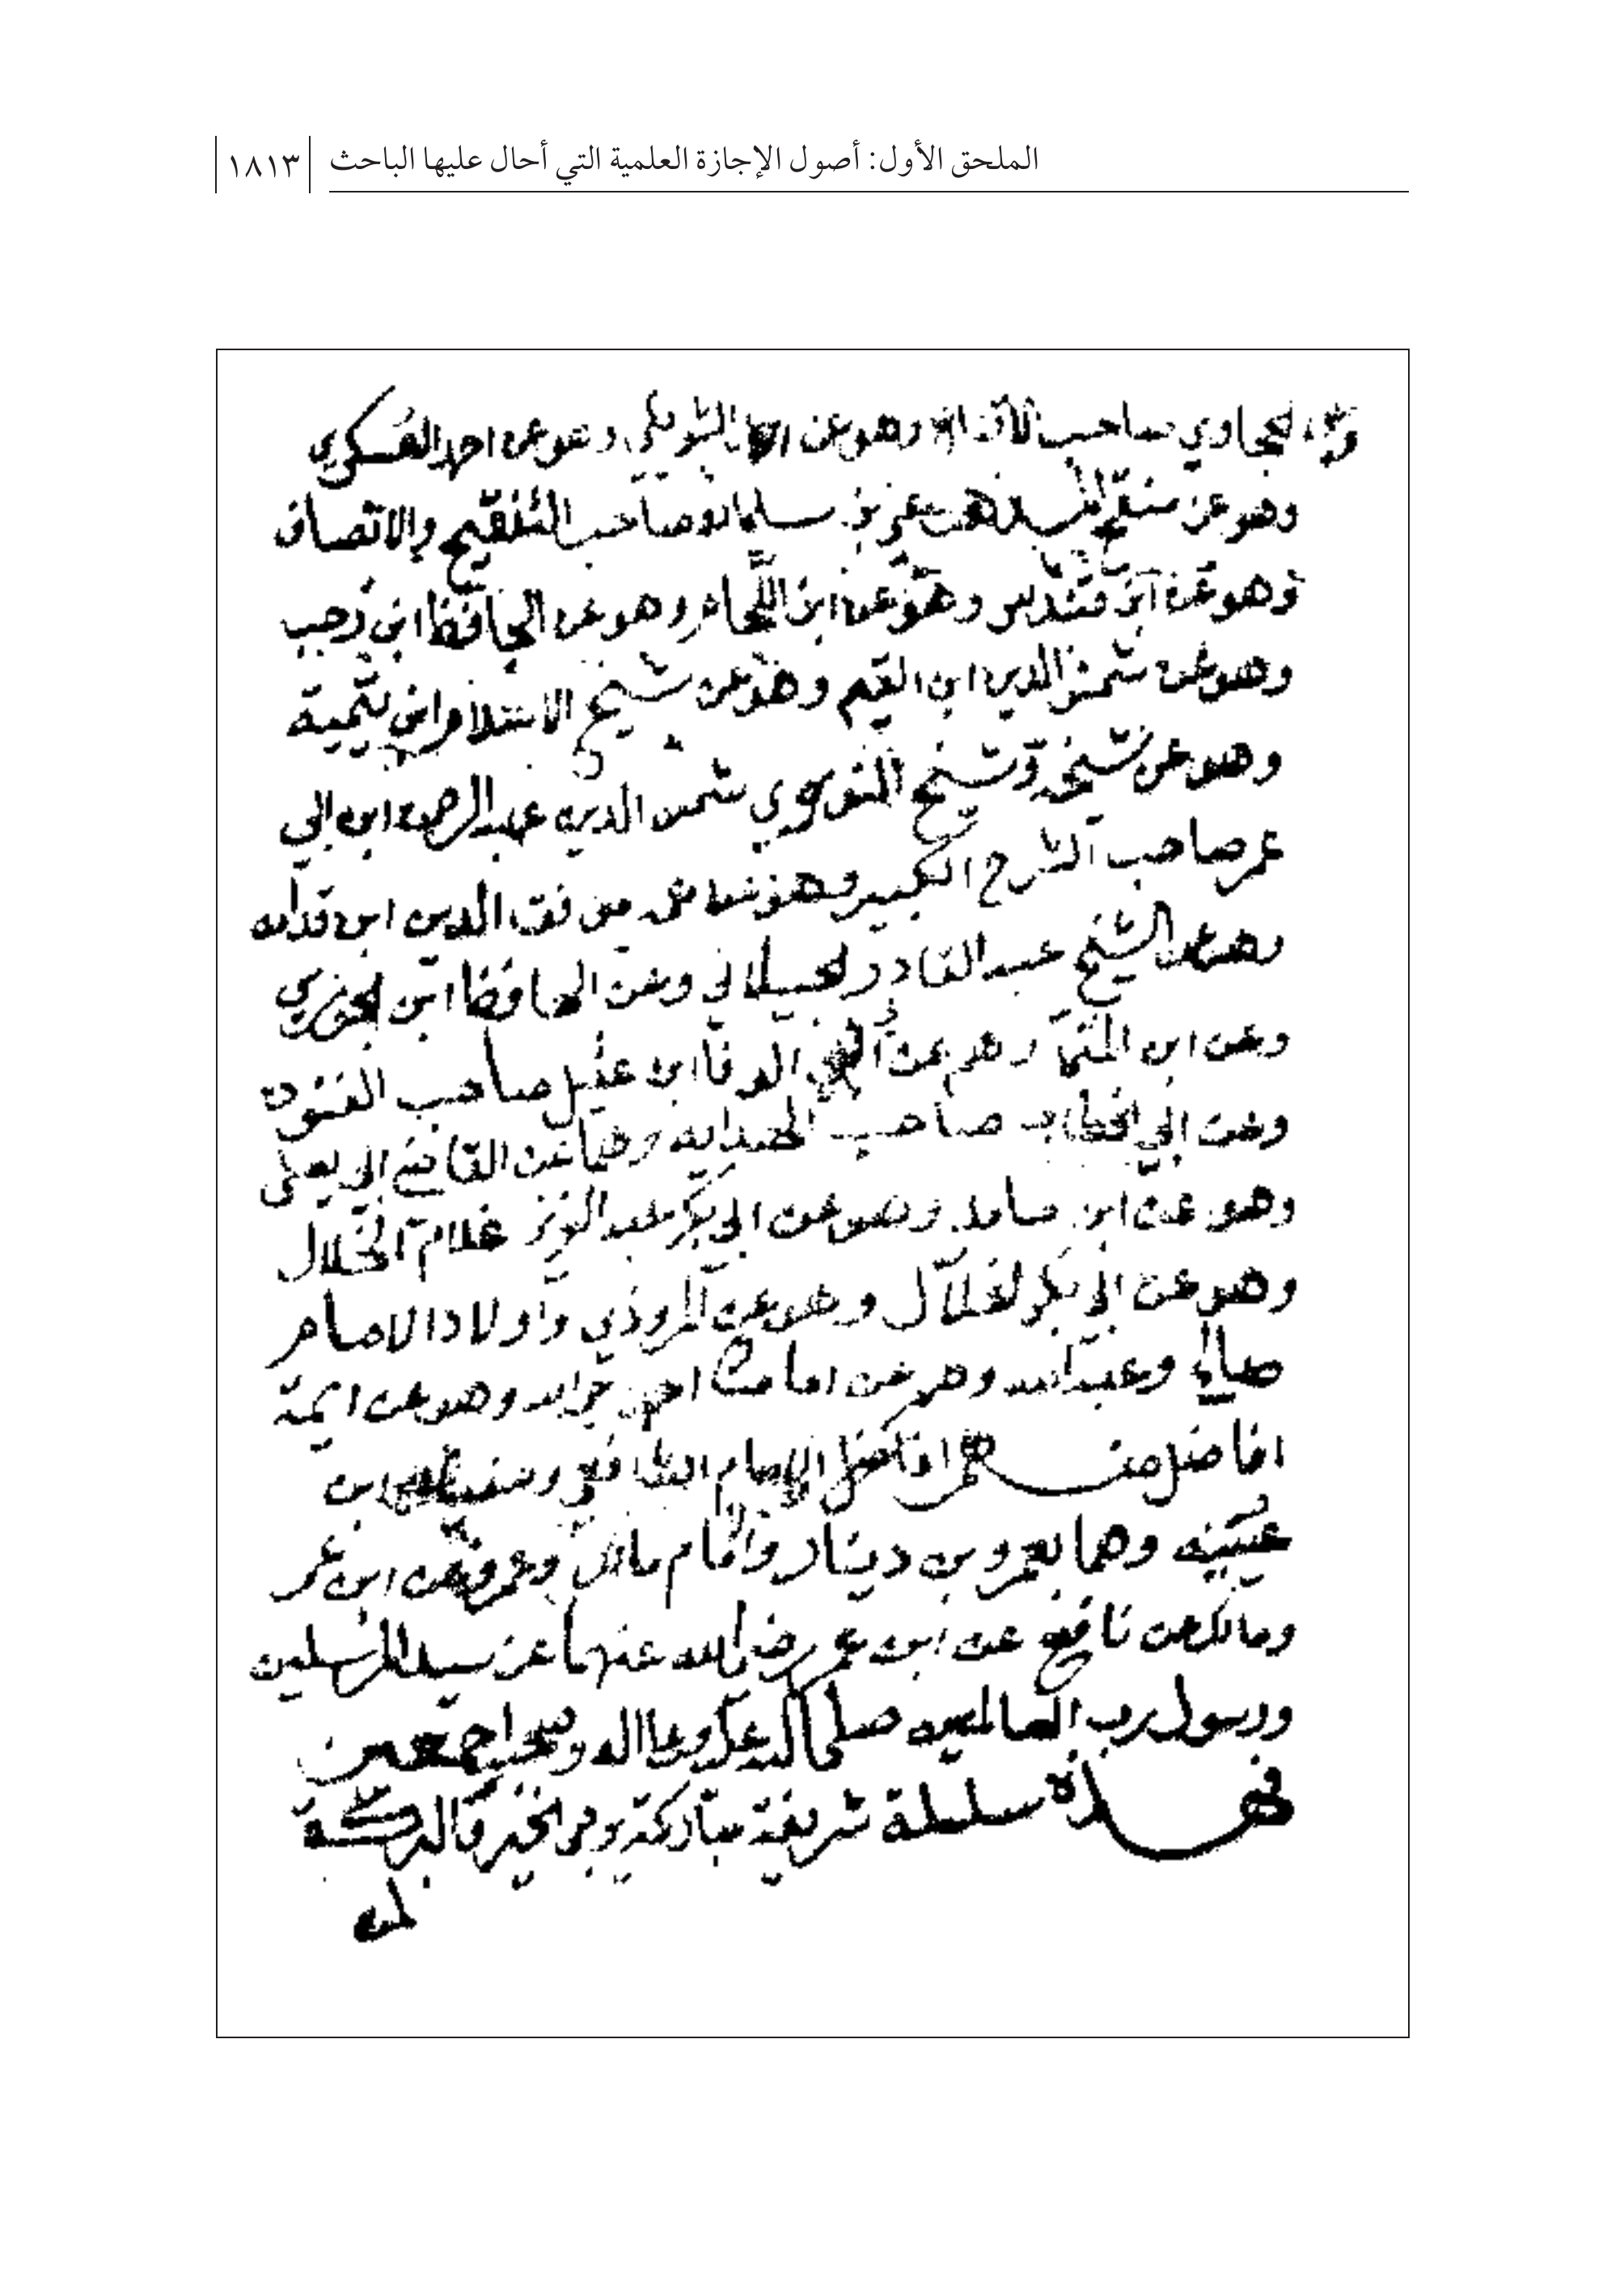 الملحق الأول: أصول الإجازة العلمية التي أحال عليها الباحث
١٨١٣
الحجاوي صاحب الاقناع وهو عن الشويكي وهو عن احمد العسكري
وهو عن منقح المذهب علي بن سليمان صاحب التنقيح والانصاف
وهو عن ابن قندس وهو عن ابن اللحام وهو عن الحافظ ابن رجب
وهو عن شمس الدين ابن القيم وهو عن شيخ الاسلام ابن تيمية
وهو عن شيخه وشيخ النووي شمس الدين عبد الرحمن ابن ابي
عمر صاحب الشرح الكبير وهو عن عمه موفق الدين ابن قدامه
وهو عن الشيخ عبد القادر الجيلاني وعن الحافظ ابن الجوزي
وعن ابن المني وهم عن ابي الوفا ابن عقيل صاحب الفنون
وعن ابي الخطاب صاحب الهدايه وهما عن القاضي ابي يعلى
وهو عن ابن حامد وهو عن ابي بكر عبد العزيز غلام الخلال
وهو عن ابي بكر الخلال وهو عن المروذي واولاد الامام
صالح وعبد الله وهم عن امامنا احمد وهو عن ايمة
افاضل من افضلهم الامام الشافعي وسفيان ابن
عيينه وهما بعمرو بن دينار وامام مالك وعمرو عن ابن عمر
ومالك عن نافع عن ابن عمر رضي الله عنهما عن سيد المرسلين
ورسول رب العالمين صلى الله عليه وعلى اله وصحبه اجمعين
فهذه سلسلة شريفة مباركة يرجى الخير والبركة
لمن